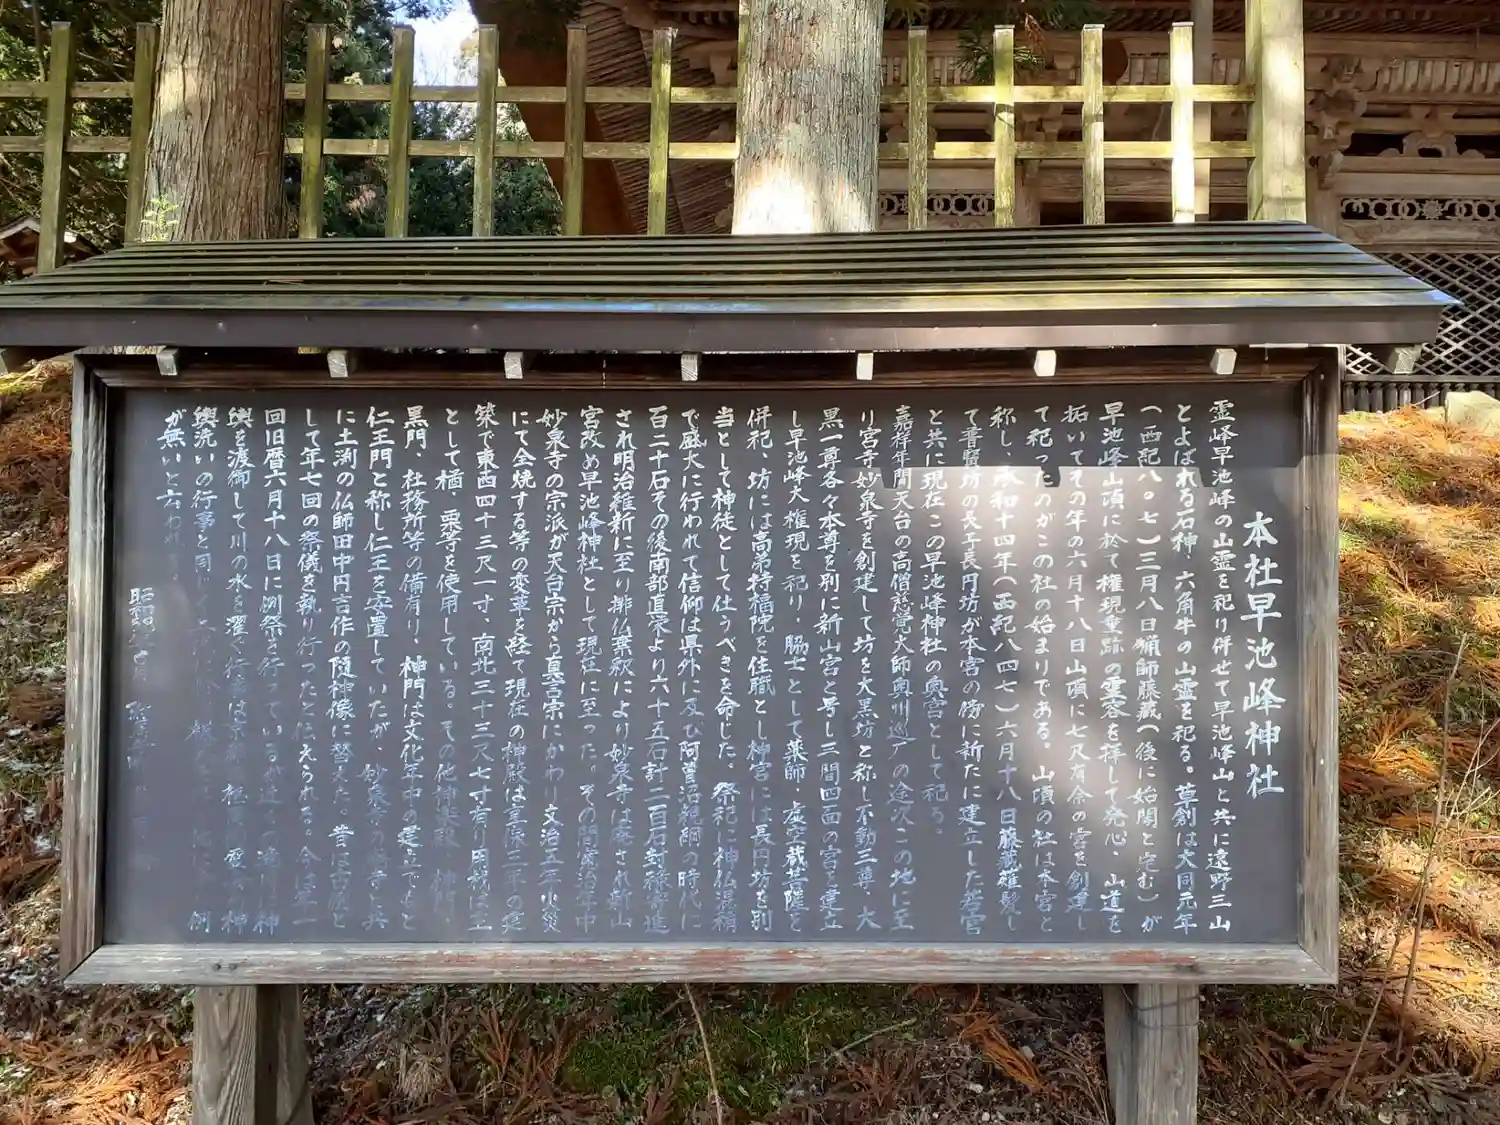 本社早池峰神社
霊峰早池峰の山霊を祀り併せて早池峰山と共に遠野三山
とよばれる石神・六角牛の山霊を祀る。草創は大同元年
(西紀八〇七)三月八日猟師藤蔵(後に始閣と宅む)が
早池峰山頂に於て権現垂跡の霊容を拝して発心・山道を
拓いてその年の六月十八日山頂に七尺有余の宮を創建し
て祀ったのがこの社の始まりである。山頂の社は本宮と
称し、承和十四年(西紀八四七)六月十八日藤蔵薙髪し
て普賢坊の長子長円坊が本宮の傍に新たに建立した若宮
と共に現在この早池峰神社の奥宮として祀る。
嘉祥年間天台の高僧慈覚大師奥州巡戸の途次この地に至
り宮寺妙泉寺を創建して坊を大黒坊と称し不動三尊・大
黒一尊各々本尊を別に新山宮と号し三間四面の宮を建立
し早池峰大権現を祀り、脇士として薬師・虚空蔵菩薩を
併祀、坊には高弟持福院を住職とし神宮には長円坊を別
当として神徒として仕うべきを命じた。祭祀に神仏混稍
で盛大に行われて信仰は県外に及び阿曽沼親綱の時代に
百二十石その後南部直栄より六十五石計二百石封禄寄進
され明治維新に至り排仏棄釈により妙泉寺は廃され新山
宮改め早池峰神社として現在に至った。その間慶治年中
妙泉寺の宗派が天台宗から真言宗にかわり文治五年火災
にて全焼する等の変革を経て現在の神殿は
築で東西四十三尺一寸、南北三十三尺七寸有り用材は主
として楢・栗等を使用している。その他神楽殿、神門、
黒門、社務所等の備有り、神門は文化年中の建立でもと
仁王門と称し仁王を安置していたが、妙泉寺の廃寺と共
に土渕の仏師田中円吉作の随神像に替えた。昔は古殿と
して年七回の祭儀を執り行ったと伝えられる。今は年一
回旧暦六月十八日に例祭を行っているが
輿を渡御して川の水を濯ぐ行事は京都
輿洗いの行事と同じ
が無いと云われ